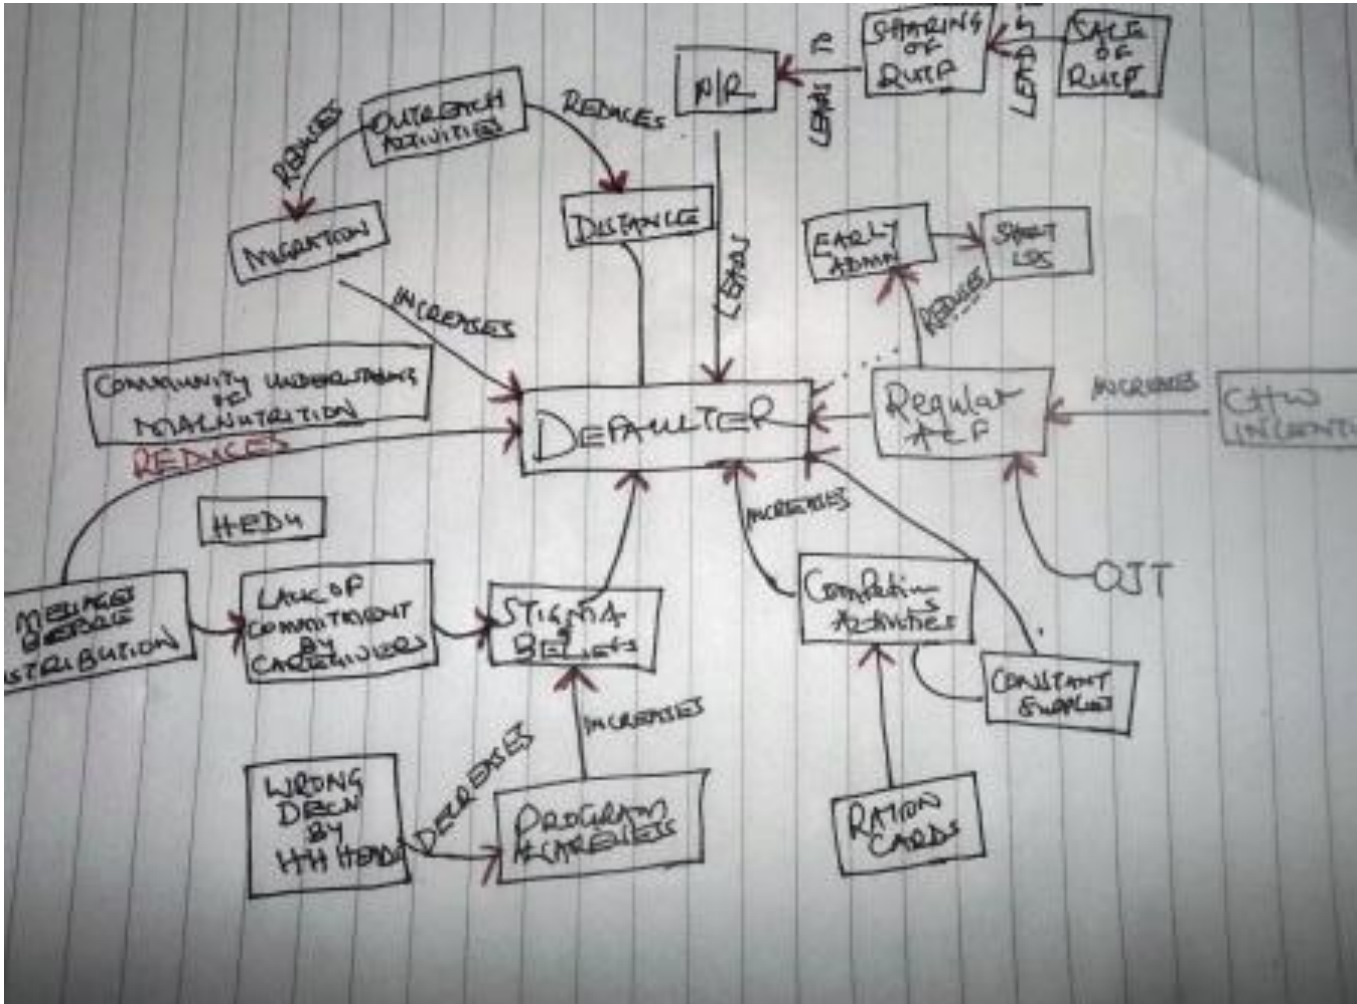 SHARING
OF
RUTF
SALE
OF
RUTF
LEADS TO
LEADS
N/R
OUTREACH
ACTIVITIES
REDUCES
REDUCES
MIGRATION
DISTANCE
LEADS
EARLY
ADMN
SHORT
LOS
REDUCES
INCREASES
COMMUNITY UNDERSTANDING
OF
MALNUTRITION
REDUCES
DEFAULTER
Regular
ACF
INCREASES
CHW
INCENTI
HEDU
INCREASES
OJT
MESSAGES
BEFORE
STRIBUTION
LACK OF
COMMITMENT
BY
CAREGIVERS
STIGMA
&
BELIEFS
Activities
CONSTANT
SUPPLIES
INCREASES
DECREASES
WRONG
DECN
BY
HH HEADS
PROGRAM
RATION
CARDS